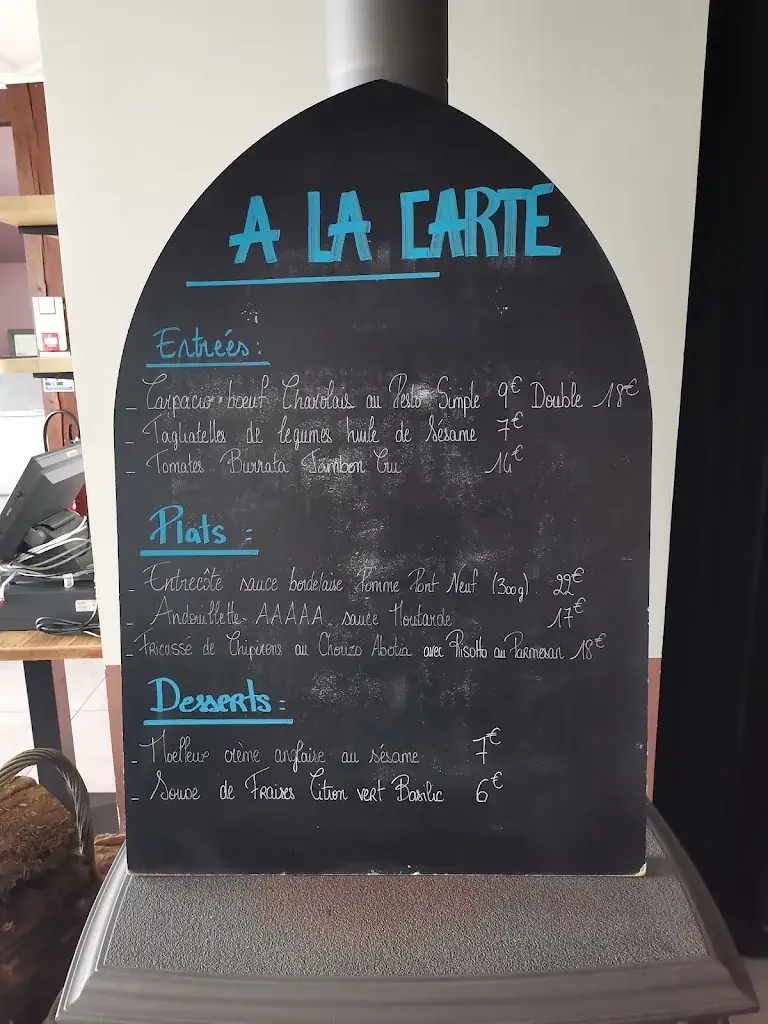 A LA CARTE
Entreés:
- Carpacio boeuf Charolais au Pesto Simple 9€ Double 18€
- Tagliatelles de legumes huile de Sésame 7€
- Tomates Burrata Jambon Cru 14€
Plats :
- Entrecôte sauce bordelaise Pomme Pont Neuf (300g) 22€
- Andouillette AAAAA sauce Moutarde 17€
- Fricassé de Chipirons au Chorizo Abotia avec Risotto au Parmesan 18€
Desserts :
- Moelleux crème anglaise au sésame 7€
- Soupe de Fraises Citron vert Basilic 6€